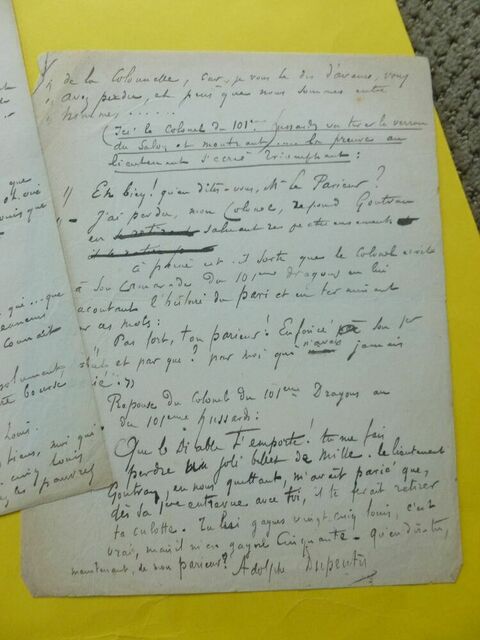 de la Colonelle, car, je vous le dis d'avance, vous
avez perdu, et puis que nous sommes entre
hommes ......
(Ici le Colonel du 101e Hussards va tirer le verrou
du Salon et montrant la preuve au
lieutenant s'écrie triomphant:
Eh bien! qu'en dites-vous, Mr le Parieur?
J'ai perdu, mon Colonel, répond Goutran
en saluant respectueusement
à peine est-il sorti que le Colonel écrit
à son Camarade du 101eme dragons en lui
racontant l'histoire du pari et en terminant
par ces mots:
Pas fort, ton parieur! Enfoncé son 1er
et par que? par moi qui n'avais jamais
parié!
Réponse du Colonel du 101eme Dragons au
du 101eme Hussards:
Que le Diable t'emporte! tu me fais
perdre un joli billet de Mille. Le lieutenant
Goutran, en nous quittant, m'avait parié que,
dès sa 1ere entrevue avec toi, il te ferait retirer
ta culotte. Tu lui gagnes vingt-cinq louis, c'est
vrai, mais il m'en gagne Cinquante - qu'en dis-tu,
maintenant, de mon parieur? Adolphe Dupeuty
que
louis que
qui ... que
bourse
louis
tiens, moi qui
cinq louis
les pauvres